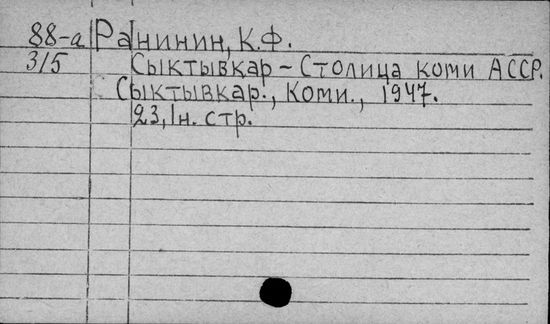 88-а Ранинин, К.Ф.
315 Сыктывкар – Столица коми АССР.
Сыктывкар., Коми., 1947.
23, 1н. стр.